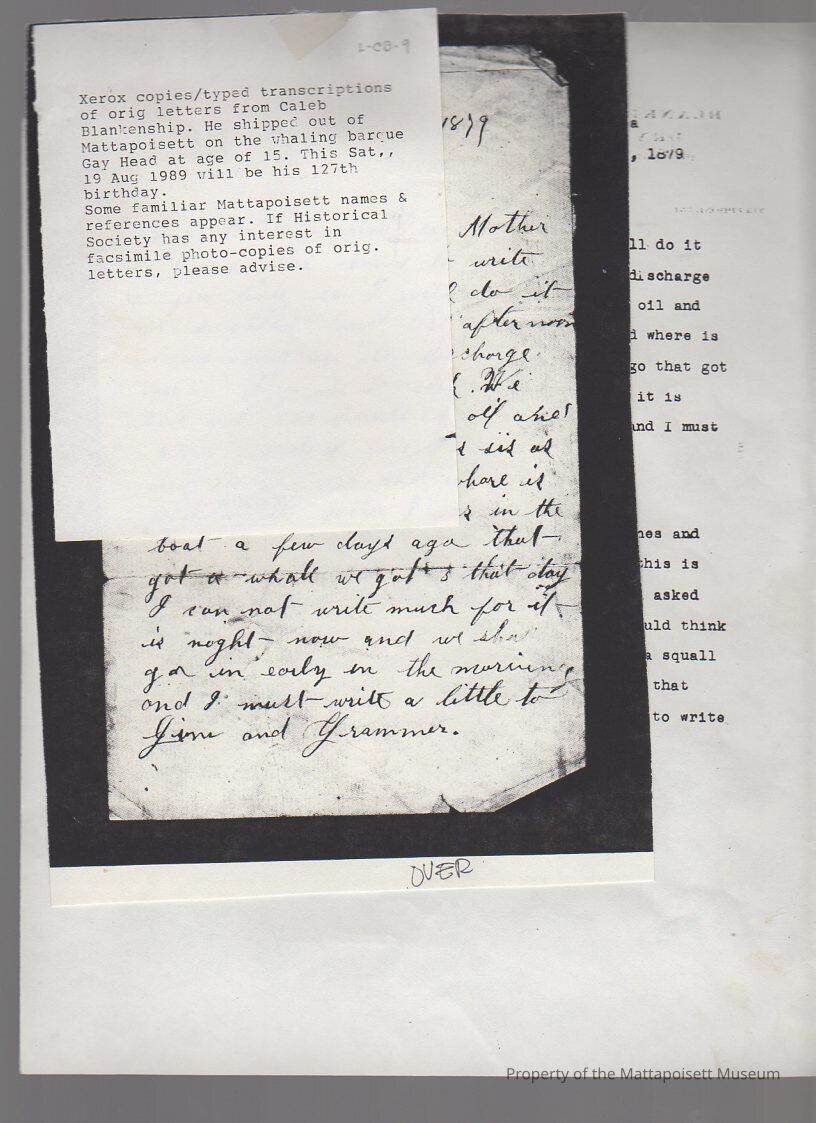 L-CB-9
Xerox copies/typed transcriptions
of orig letters from Caleb
Blankenship. He shipped out of
Mattapoisett on the whaling barque
Gay Head at age of 15. This Sat,,
19 Aug 1989 will be his 127th
birthday.
Some familiar Mattapoisett names &
references appear. If Historical
Society has any interest in
facsimile photo-copies of orig.
letters, please advise.
1879
Mother
write
do it
afternoon
charge
. We
oil and
sis as
whare is
in the
boat a few days ago that
got a whall we got 3 that day
I can not write much for it
is night now and we sha
go in early in the morning
and I must write a little to
Jim and Grammer.
OVER
a
, 1879
ll do it
discharge
oil and
d where is
go that got
it is
and I must
nes and
this is
asked
uld think
a squall
that
to write
Property of the Mattapoisett Museum